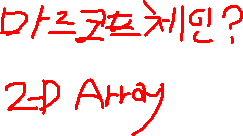 마르코프체인?
2-D Array